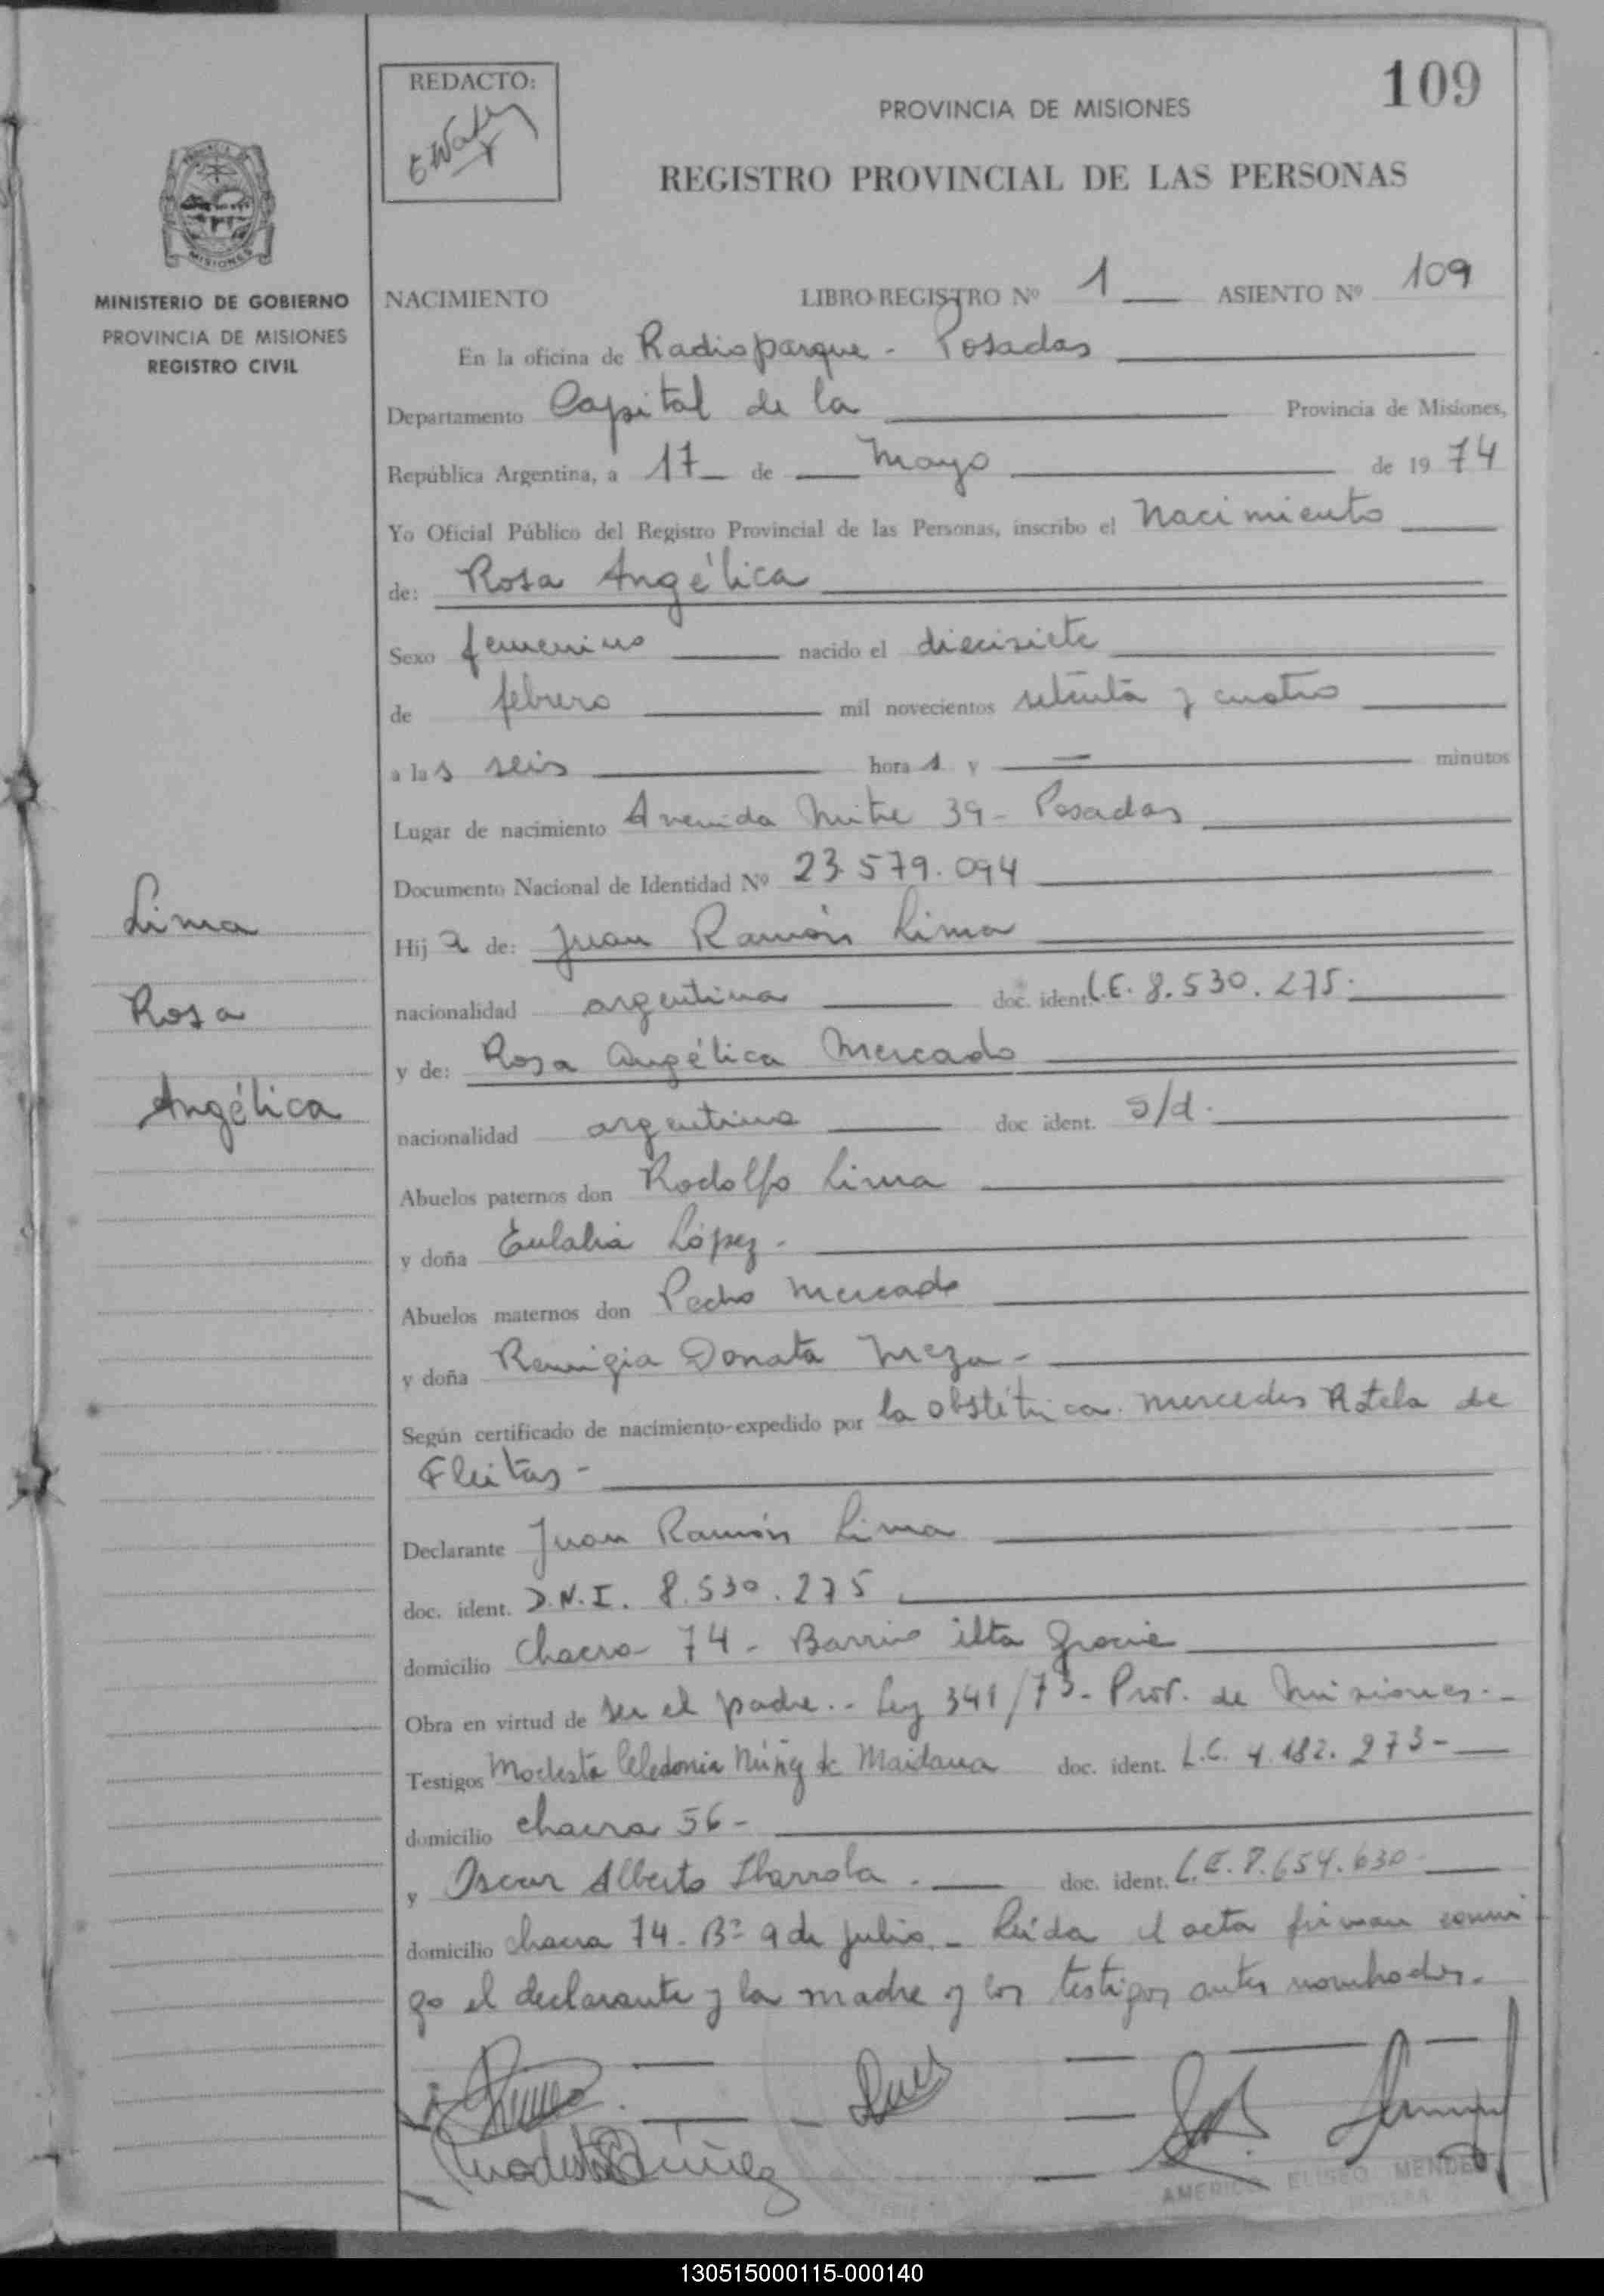 109
REDACTO:
PROVINCIA DE MISIONES
REGISTRO PROVINCIAL DE LAS PERSONAS
MISIONES
MINISTERIO DE GOBIERNO
PROVINCIA DE MISIONES
REGISTRO CIVIL
NACIMIENTO LIBRO-REGISTRO Nº 1 ASIENTO Nº 109
En la oficina de Radioparque - Posadas
Departamento Capital de la Provincia de Misiones,
República Argentina, a 17 de Mayo de 1974
Yo Oficial Público del Registro Provincial de las Personas, inscribo el Nacimiento
de: Rosa Angélica
Sexo femenino nacido el diecisiete
de febrero mil novecientos setenta y cuatro
a las seis horas y — minutos
Lugar de nacimiento Avenida Mitre 39 - Posadas
Documento Nacional de Identidad Nº 23.579.094
Lima
Rosa
Angélica
Hija de: Juan Ramón Lima
nacionalidad argentina doc. ident. L.E. 8.530.275.
y de: Rosa Angélica Mercado
nacionalidad argentina doc ident. s/d.
Abuelos paternos don Rodolfo Lima
y doña Eulalia López.
Abuelos maternos don Pedro Mercado
y doña Remigia Donata Meza -
Según certificado de nacimiento-expedido por la obstétrica Mercedes Rotela de
Fleitas -
Declarante Juan Ramón Lima
doc. ident. D.N.I. 8.530.275
domicilio Chacra 74 - Barrio
Obra en virtud de ser el padre.- Ley 341/73- Prov. de Misiones.-
Testigos Modesta Celedonia Núñez de Maidana doc. ident. L.C. 4.182.273-
domicilio chacra 56 -
y Oscar Alberto Ibarrola. doc. ident. L.E. 7.654.630
domicilio chacra 74 - Bº 9 de julio. - Leída el acta firman conmi
go el declarante y la madre y los testigos antes nombrados.
Modesta Núñez
AMERICO ELISEO MENDEZ
130515000115-000140